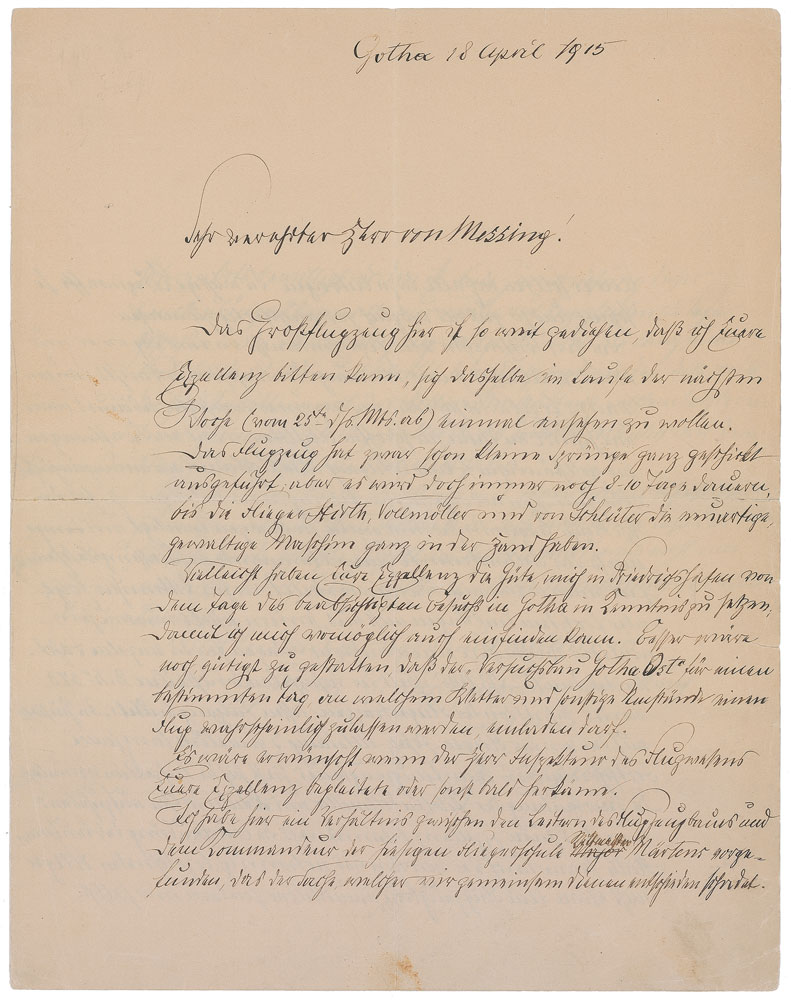 Gotha 18 April 1915
Sehr verehrter Herr von Messing!
Das Großflugzeug hier ist so weit gediehen, daß ich Euere
Exzellenz bitten kann, sich dasselbe im Laufe der nächsten
Woche (vom 25ten d/s. Mts. ab) einmal ansehen zu wollen.
Das Flugzeug hat zwar schon kleine Sprünge ganz geschickt
ausgeführt, aber es wird doch immer noch 8-10 Tage dauern,
bis die Flieger Hirth, Vollmöller und von Schlüter die neuartige,
gewaltige Maschine ganz in der Hand haben.
Vielleicht haben Eure Exzellenz die Güte, mich in Friedrichshafen von
dem Tage des beabsichtigten Besuchs in Gotha in Kenntnis zu setzen,
damit ich mich womöglich auch einfinden kann. Besser wäre
noch gütigst zu gestatten, daß der „Versuchsbau Gotha Ost" für einen
bestimmten Tag, an welchem Wetter und sonstige Umstände einen
Flug wahrscheinlich zulassen werden, einladen darf.
Es wäre erwünscht wenn der Herr Inspekteur des Flugwesens
Euere Exzellenz begleitete oder sonst bald herkäme.
Ich habe hier ein Verhältnis zwischen den Leitern des Flugzeugbaus und
dem Kommandeur der hiesigen Fliegerschule Rittmeister Märtens vorge-
funden, das der Sache, welcher wir gemeinsam dienen entschieden schadet.